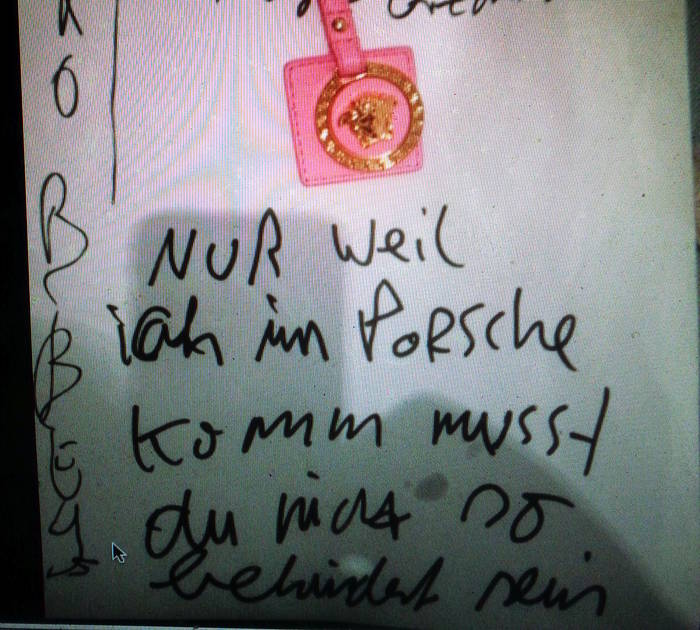 NUR weil
ich im PORSche
Komm musst
du nicht so
behindert sein